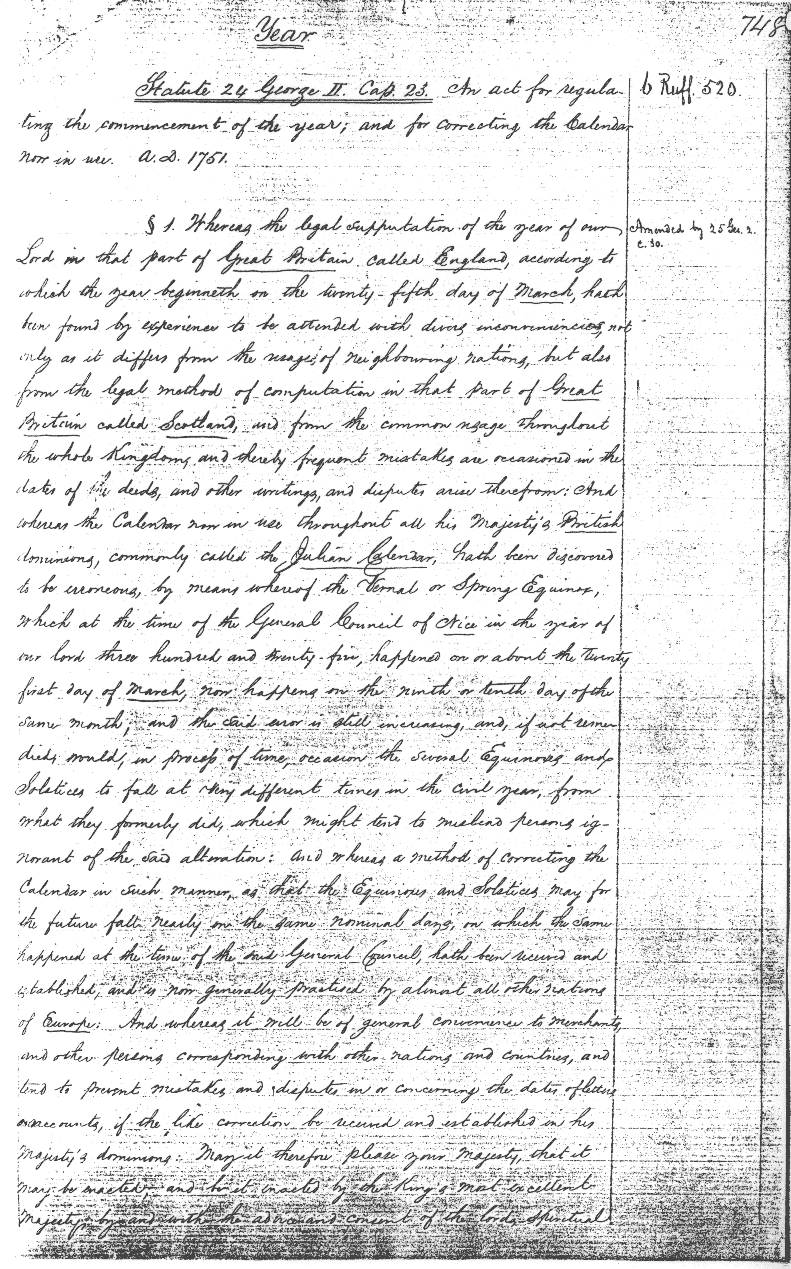 Year
748
Statute 24 George II. Cap. 23. An act for regula-
6 Ruff. 520.
ting the commencement of the year; and for correcting the Calendar
now in use. A.D. 1751.
§ 1. Whereas the legal supputation of the year of our
Amended by 25 Geo. 2.
c. 30.
Lord in that part of Great Britain called England, according to
which the year beginneth on the twenty-fifth day of March, hath
been found by experience to be attended with divers inconveniencies, not
only as it differs from the usage of neighbouring nations, but also
from the legal method of computation in that part of Great
Britain called Scotland, and from the common usage throughout
the whole Kingdom, and thereby frequent mistakes are occasioned in the
dates of the deeds, and other writings, and disputes arise therefrom: And
whereas the Calendar now in use throughout all his Majesty's British
dominions, commonly called the Julian Calendar, hath been discovered
to be erroneous, by means whereof the Vernal or Spring Equinox,
which at the time of the General Council of Nice in the year of
our lord three hundred and twenty-five, happened on or about the twenty
first day of March, now happens on the ninth or tenth day of the
same month; and the said error is still increasing, and, if not reme-
died, would, in process of time, occasion the several Equinoxes and
Solstices to fall at very different times in the civil year, from
what they formerly did, which might tend to mislead persons ig-
norant of the said alteration: And whereas a method of correcting the
Calendar in such manner, as that the Equinoxes and Solstices may for
the future fall nearly on the same nominal days, on which the same
happened at the time of the said General Council, hath been received and
established, and is now generally practised by almost all other nations
of Europe: And whereas it will be of general convenience to merchants,
and other persons corresponding with other nations and countries, and
tend to prevent mistakes and disputes in or concerning the dates of letters
or accounts, if the like correction be received and established in his
Majesty's dominions: May it therefore please your Majesty, that it
may be enacted; and be it enacted by the King's most excellent
Majesty, by and with the advice and consent of the lords spiritual